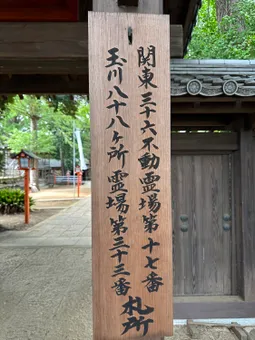 関東三十六不動霊場第十七番
玉川八十八ヶ所霊場第三十三番札所